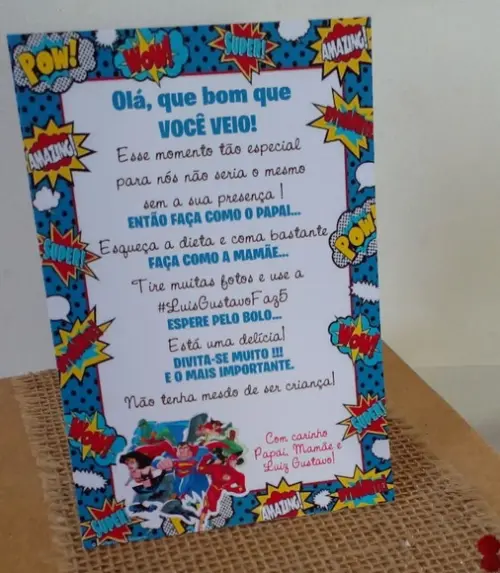 POW!
WOW!
SUPER!
AMAZING!
Olá, que bom que
VOCÊ VEIO!
AMAZING!
Esse momento tão especial
para nós não seria o mesmo
sem a sua presença !
ENTÃO FAÇA COMO O PAPAI...
POW!
SUPER!
Esqueça a dieta e coma bastante
FAÇA COMO A MAMÃE...
Tire muitas fotos e use a
#LuisGustavoFaz5
ESPERE PELO BOLO...
WOW!
Está uma delícia!
DIVITA-SE MUITO !!!
E O MAIS IMPORTANTE.
Não tenha mesdo de ser criança!
SUPER!
WOW!
Com carinho
Papai, Mamãe e
Luiz Gustavo!
SUPER!
AMAZING!